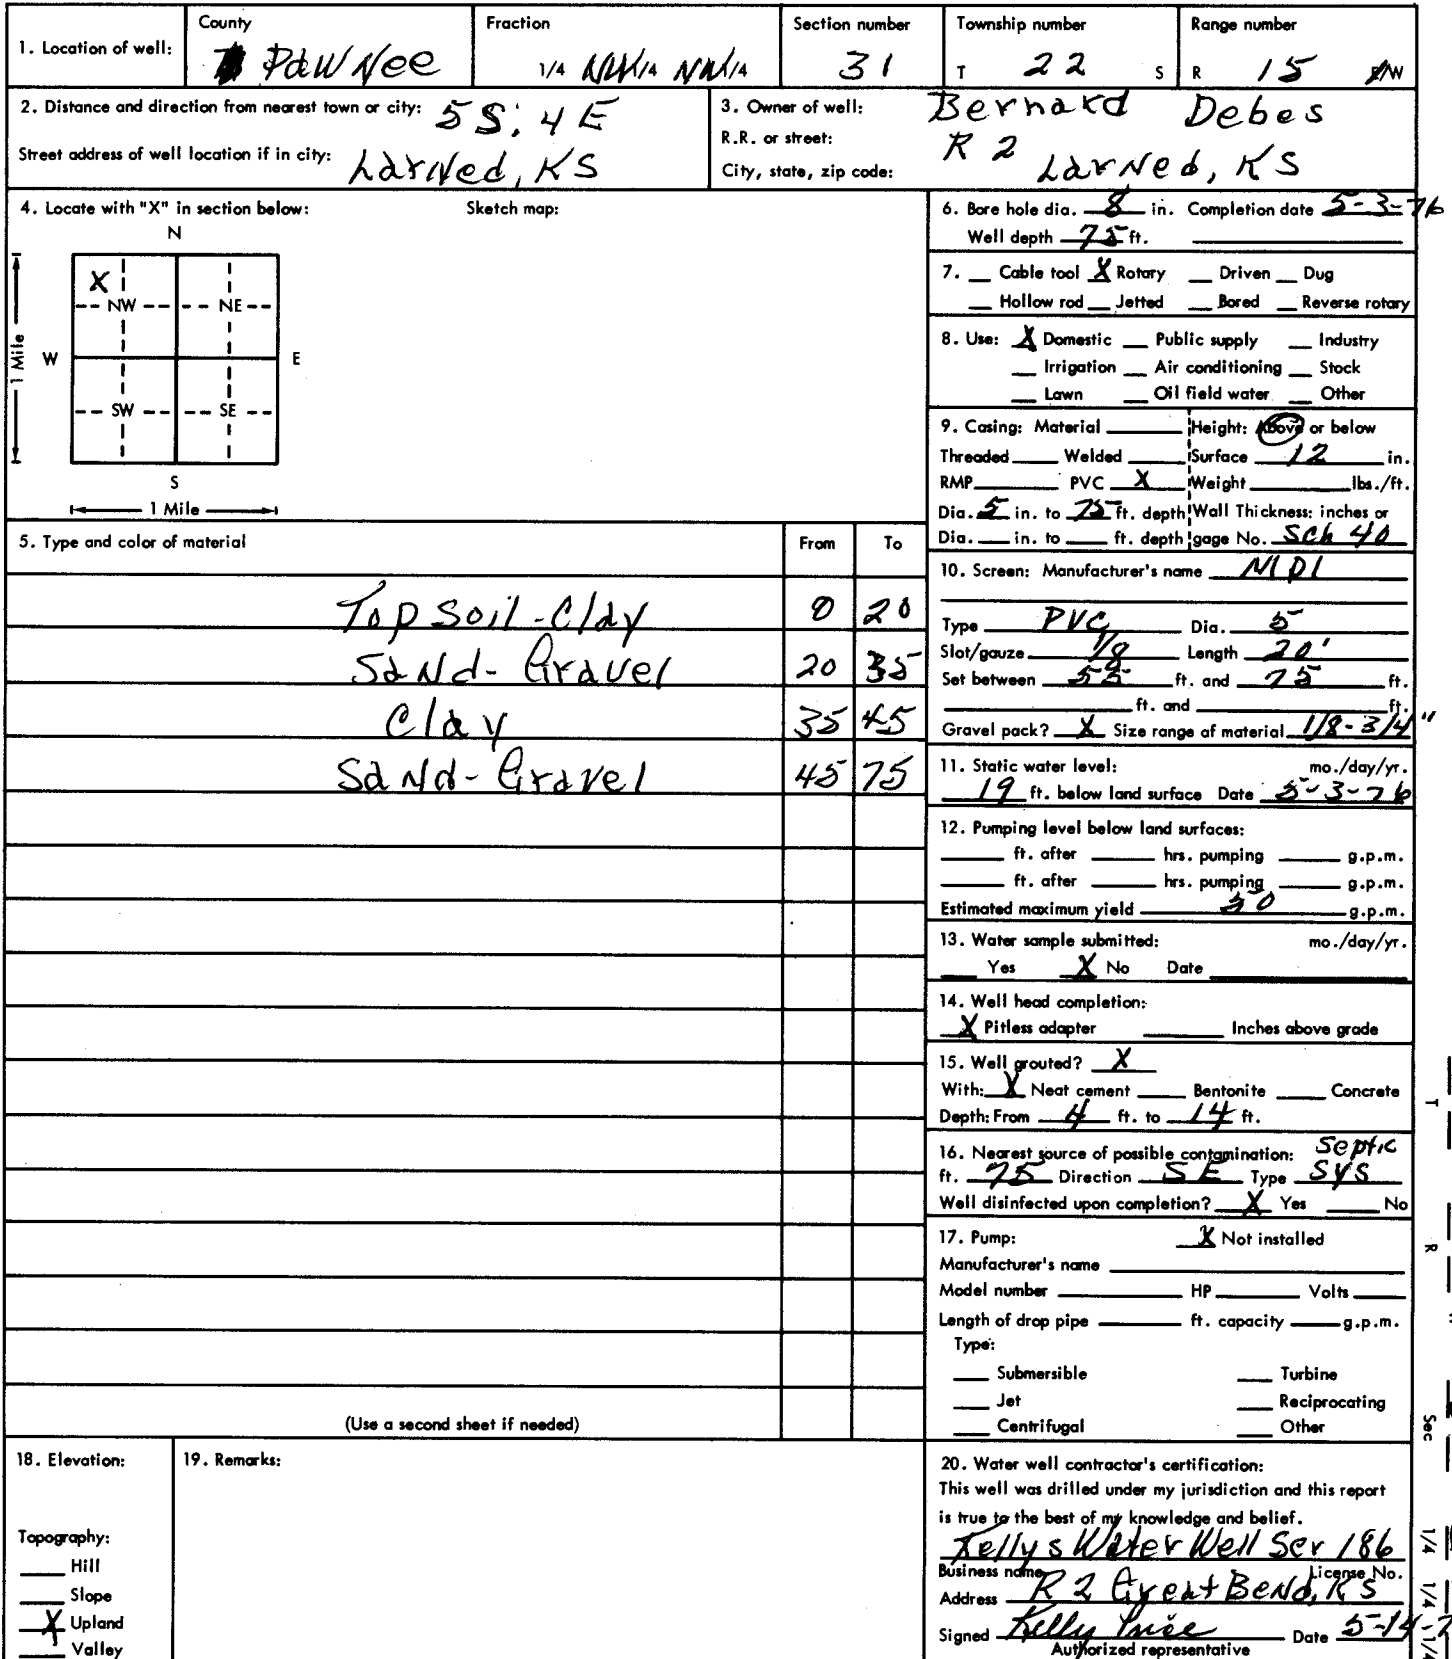 1. Location of well: County Pawnee Fraction 1/4 NW 1/4 NW 1/4 Section number 31 Township number T 22 S Range number R 15 E/W
2. Distance and direction from nearest town or city: 5S; 4E
Street address of well location if in city: Larned, KS
3. Owner of well: Bernard Debes
R.R. or street: R 2
City, state, zip code: Larned, KS
4. Locate with "X" in section below: Sketch map:
N
X
NW NE
W E
1 Mile
SW SE
S
1 Mile
5. Type and color of material From To
Top Soil - Clay 0 20
Sand - Gravel 20 35
Clay 35 45
Sand - Gravel 45 75
(Use a second sheet if needed)
6. Bore hole dia. 8 in. Completion date 5-3-76
Well depth 75 ft.
7. __ Cable tool X Rotary __ Driven __ Dug
__ Hollow rod __ Jetted __ Bored __ Reverse rotary
8. Use: X Domestic __ Public supply __ Industry
__ Irrigation __ Air conditioning __ Stock
__ Lawn __ Oil field water __ Other
9. Casing: Material ____ Height: Above or below
Threaded ____ Welded ____ Surface 12 in.
RMP ____ PVC X Weight ____ lbs./ft.
Dia. 5 in. to 75 ft. depth Wall Thickness: inches or
Dia. __ in. to __ ft. depth gage No. Sch 40
10. Screen: Manufacturer's name
Type PVC Dia. 5
Slot/gauze 1/8 Length 20'
Set between 55 ft. and 75 ft.
____ ft. and ____ ft.
Gravel pack? X Size range of material 1/8-3/4"
11. Static water level: mo./day/yr.
19 ft. below land surface Date 5-3-76
12. Pumping level below land surfaces:
____ ft. after ____ hrs. pumping ____ g.p.m.
____ ft. after ____ hrs. pumping ____ g.p.m.
Estimated maximum yield g.p.m.
13. Water sample submitted: mo./day/yr.
__ Yes X No Date ____
14. Well head completion:
X Pitless adapter ____ Inches above grade
15. Well grouted? X
With: X Neat cement ____ Bentonite ____ Concrete
Depth: From 4 ft. to 14 ft.
16. Nearest source of possible contamination: Septic
ft. 75 Direction SE Type Sys
Well disinfected upon completion? X Yes ____ No
17. Pump: X Not installed
Manufacturer's name ____
Model number ____ HP ____ Volts ____
Length of drop pipe ____ ft. capacity ____ g.p.m.
Type:
__ Submersible __ Turbine
__ Jet __ Reciprocating
__ Centrifugal __ Other
18. Elevation:
Topography:
__ Hill
__ Slope
X Upland
__ Valley
19. Remarks:
20. Water well contractor's certification:
This well was drilled under my jurisdiction and this report
is true to the best of my knowledge and belief.
Kellys Water Well Ser 186
Business name License No.
Address R 2 Great Bend, KS
Signed Kelly Price Date 5-14-7
Authorized representative
T
R
Sec
1/4 1/4 1/4